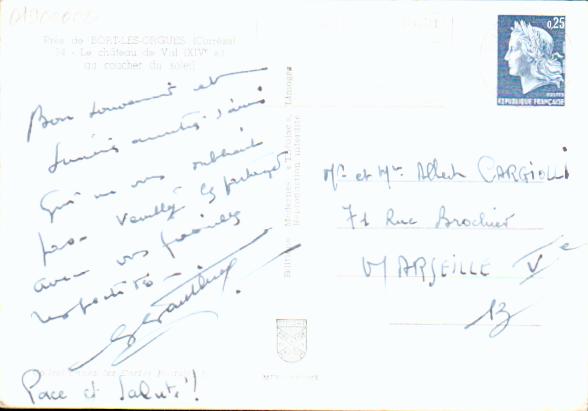 Près de BORT-LES-ORGUES (Corrèze)
14 - Le château de Val (XIVe s.)
au coucher du soleil
Bon souvenir et
sincères amitiés d'amis
qui ne vous oublient
pas Veuillez les partager
avec vos familles
respectives
Pace et Salute !
Editions Modernes « Théojac », Limoges
Reproduction interdite
0,25
POSTES
REPUBLIQUE FRANÇAISE
Mr et Mme Albert CARGIOLLI
71 Rue Brochier
MARSEILLE Ve
13